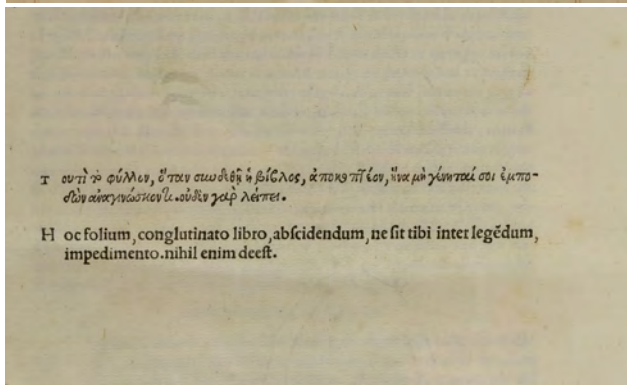 Τ ουτὶ τὸ φύλλον, ὅταν συνδεθῇ ἡ βίβλος, ἀποκοπτέον, ἵνα μὴ γένηταί σοι ἐμπο-
δὼν ἀναγινώσκοντι. οὐδὲν γὰρ λείπει.
H oc folium, conglutinato libro, abſcidendum, ne ſit tibi inter legẽdum,
impedimento. nihil enim deeſt.